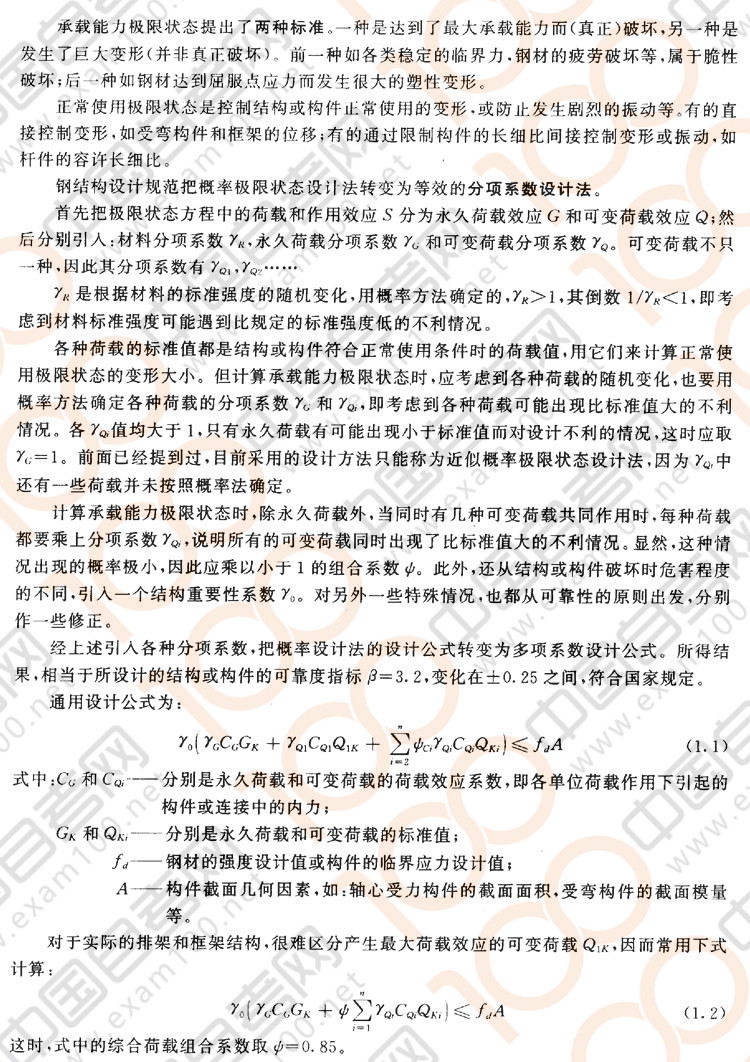 承载能力极限状态提出了两种标准。一种是达到了最大承载能力而(真正)破坏,另一种是
发生了巨大变形(并非真正破坏)。前一种如各类稳定的临界力,钢材的疲劳破坏等,属于脆性
破坏;后一种如钢材达到屈服点应力而发生很大的塑性变形。
正常使用极限状态是控制结构或构件正常使用的变形,或防止发生剧烈的振动等。有的直
接控制变形,如受弯构件和框架的位移;有的通过限制构件的长细比间接控制变形或振动,如
杆件的容许长细比。
钢结构设计规范把概率极限状态设计法转变为等效的分项系数设计法。
首先把极限状态方程中的荷载和作用效应 S 分为永久荷载效应 G 和可变荷载效应 Q;然
后分别引入:材料分项系数 γR,永久荷载分项系数 γG 和可变荷载分项系数 γQ。可变荷载不只
一种,因此其分项系数有 γQ1,γQ2……
γR 是根据材料的标准强度的随机变化,用概率方法确定的,γR>1,其倒数 1/γR<1,即考
虑到材料标准强度可能遇到比规定的标准强度低的不利情况。
各种荷载的标准值都是结构或构件符合正常使用条件时的荷载值,用它们来计算正常使
用极限状态的变形大小。但计算承载能力极限状态时,应考虑到各种荷载的随机变化,也要用
概率方法确定各种荷载的分项系数 γG 和 γQi,即考虑到各种荷载可能出现比标准值大的不利
情况。各 γQi值均大于 1,只有永久荷载有可能出现小于标准值而对设计不利的情况,这时应取
γG=1。前面已经提到过,目前采用的设计方法只能称为近似概率极限状态设计法,因为 γQi中
还有一些荷载并未按照概率法确定。
计算承载能力极限状态时,除永久荷载外,当同时有几种可变荷载共同作用时,每种荷载
都要乘上分项系数 γQi,说明所有的可变荷载同时出现了比标准值大的不利情况。显然,这种情
况出现的概率极小,因此应乘以小于 1 的组合系数 ψ。此外,还从结构或构件破坏时危害程度
的不同,引入一个结构重要性系数 γ0。对另外一些特殊情况,也都从可靠性的原则出发,分别
作一些修正。
经上述引入各种分项系数,把概率设计法的设计公式转变为多项系数设计公式。所得结
果,相当于所设计的结构或构件的可靠度指标 β=3.2,变化在±0.25 之间,符合国家规定。
通用设计公式为:
γ0(γGCGGK + γQ1CQ1Q1K + ∑(i=2→n) ψCiγQiCQiQKi) ≤ fdA (1.1)
式中:CG 和 CQi——分别是永久荷载和可变荷载的荷载效应系数,即各单位荷载作用下引起的
构件或连接中的内力;
GK 和 QKi——分别是永久荷载和可变荷载的标准值;
fd——钢材的强度设计值或构件的临界应力设计值;
A——构件截面几何因素,如:轴心受力构件的截面面积,受弯构件的截面模量
等。
对于实际的排架和框架结构,很难区分产生最大荷载效应的可变荷载 Q1K,因而常用下式
计算:
γ0(γGCGGK + ψ∑(i=1→n) γQiCQiQKi) ≤ fdA (1.2)
这时,式中的综合荷载组合系数取 ψ=0.85。
中国自考网
www.exam100.net